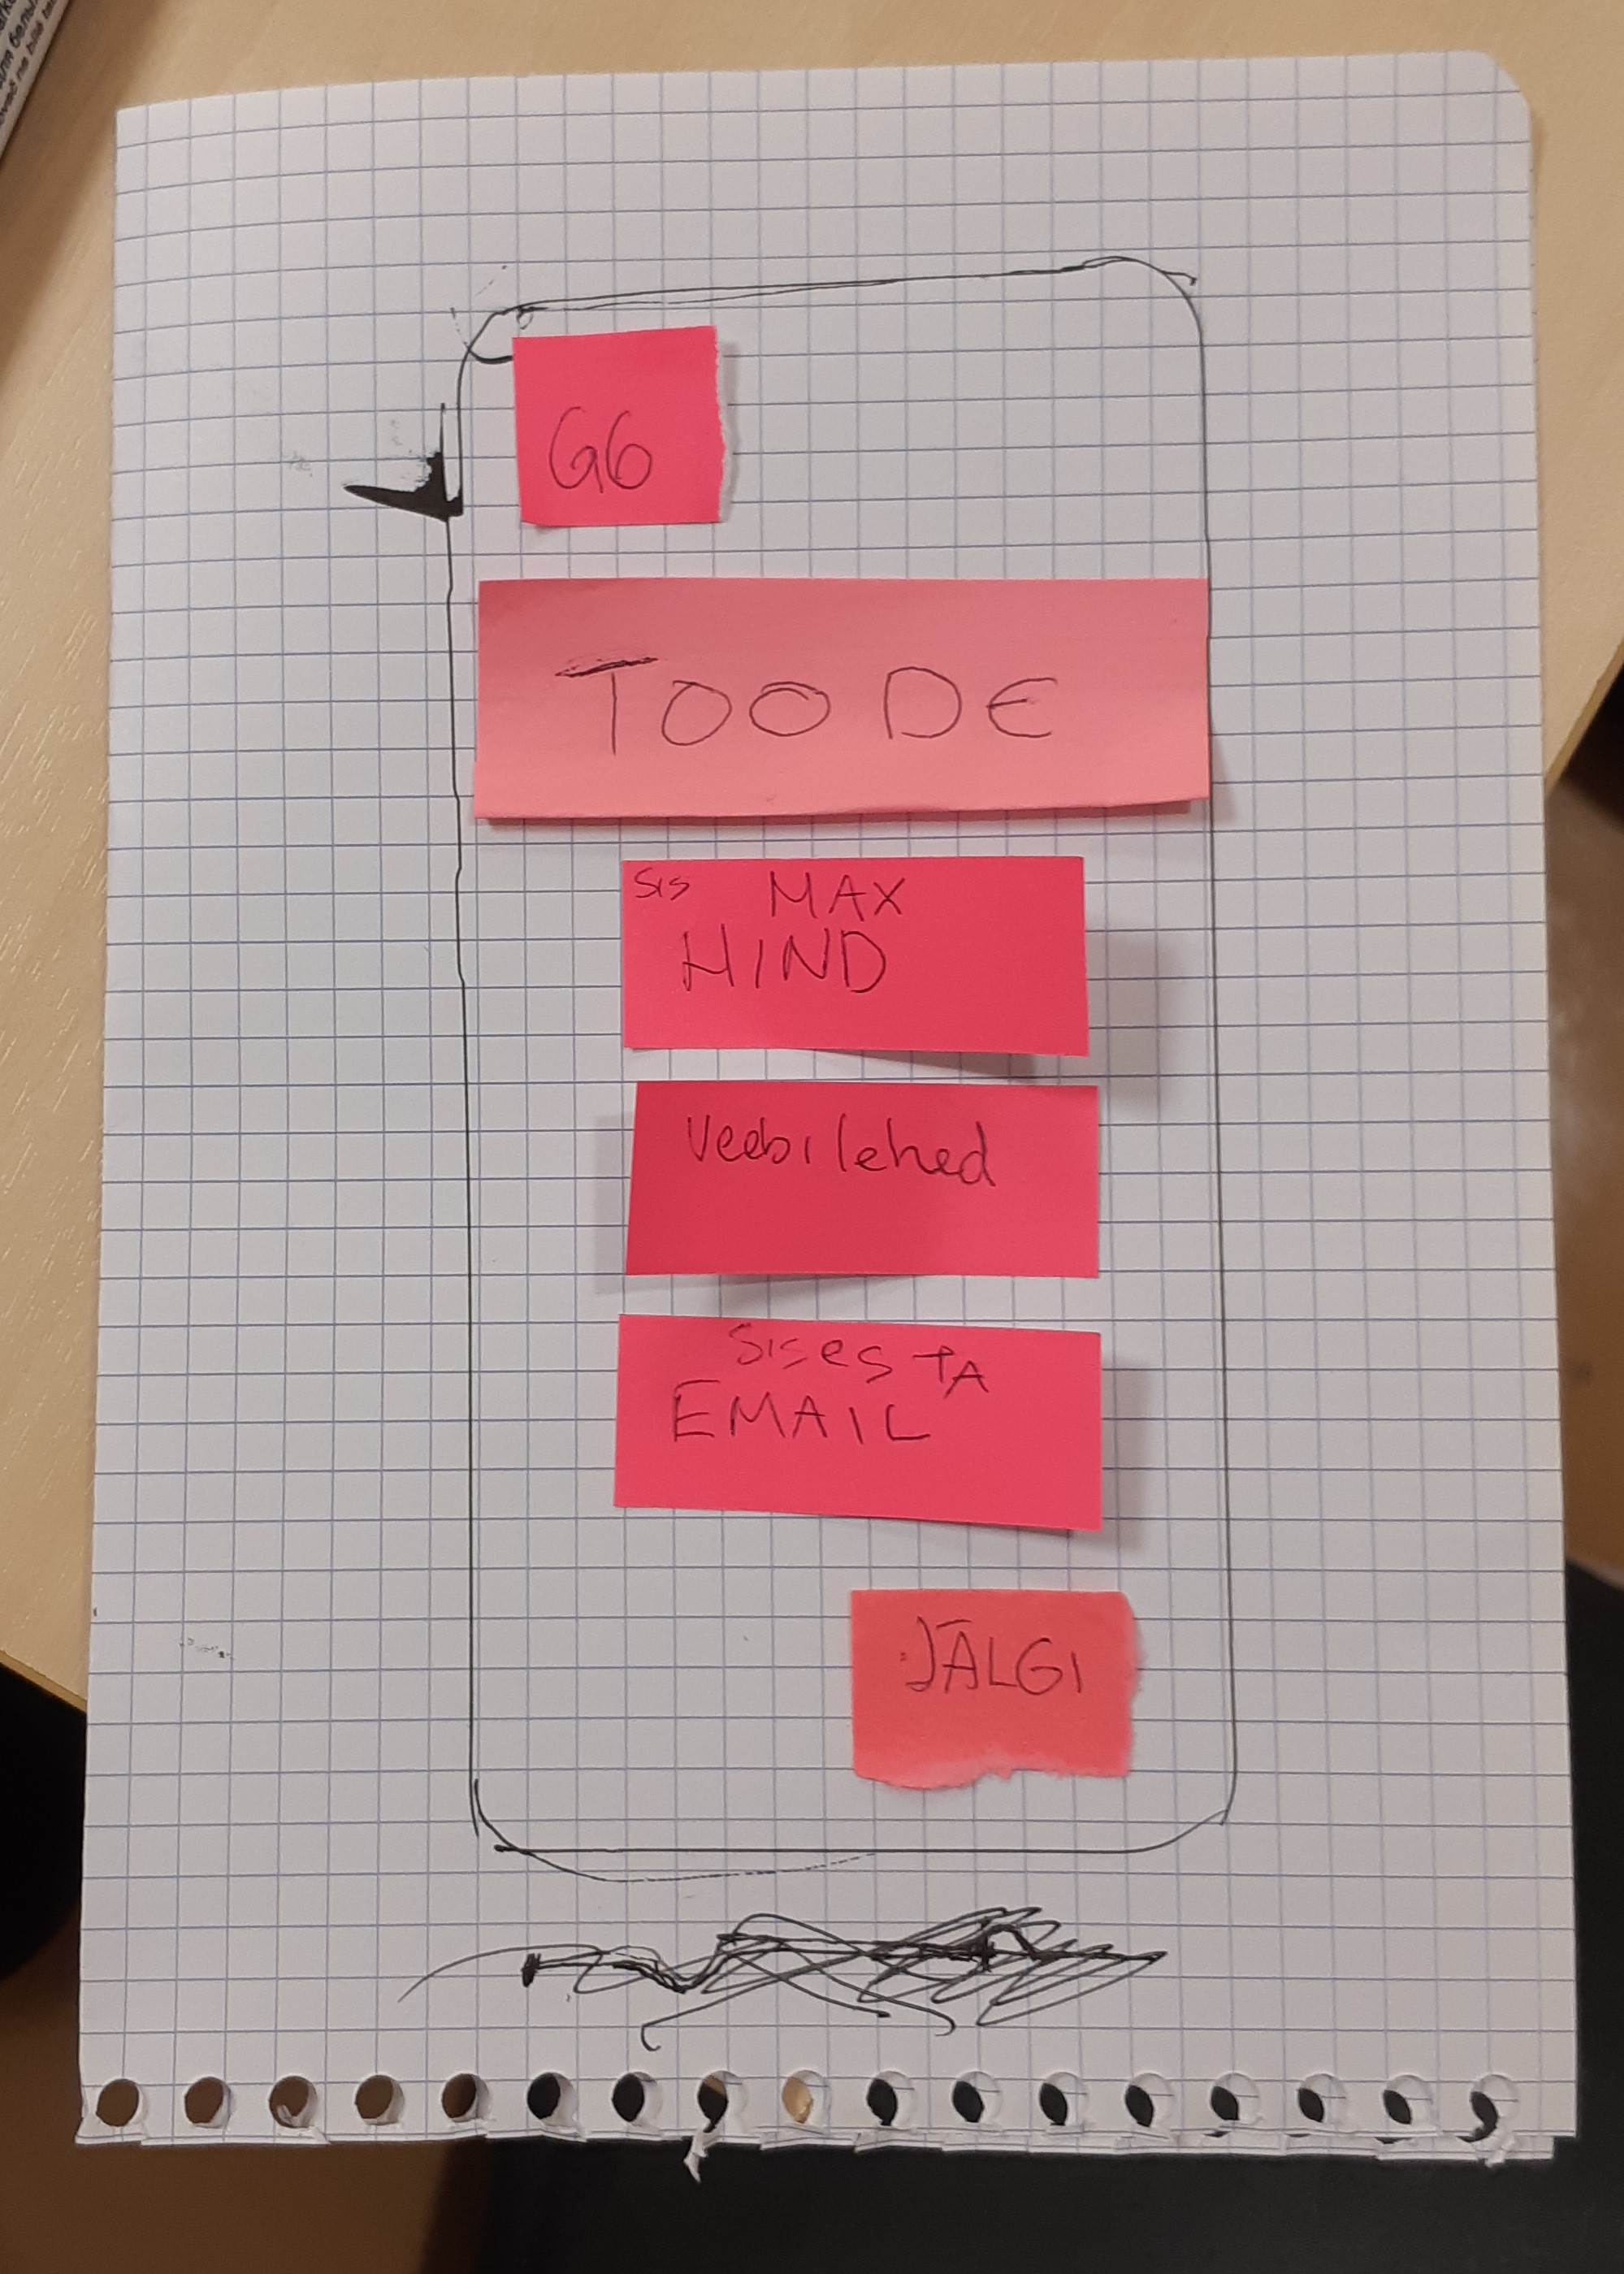 G6
TOODE
SIS MAX
HIND
Veebilehed
SISESTA
EMAIL
JÄLGI